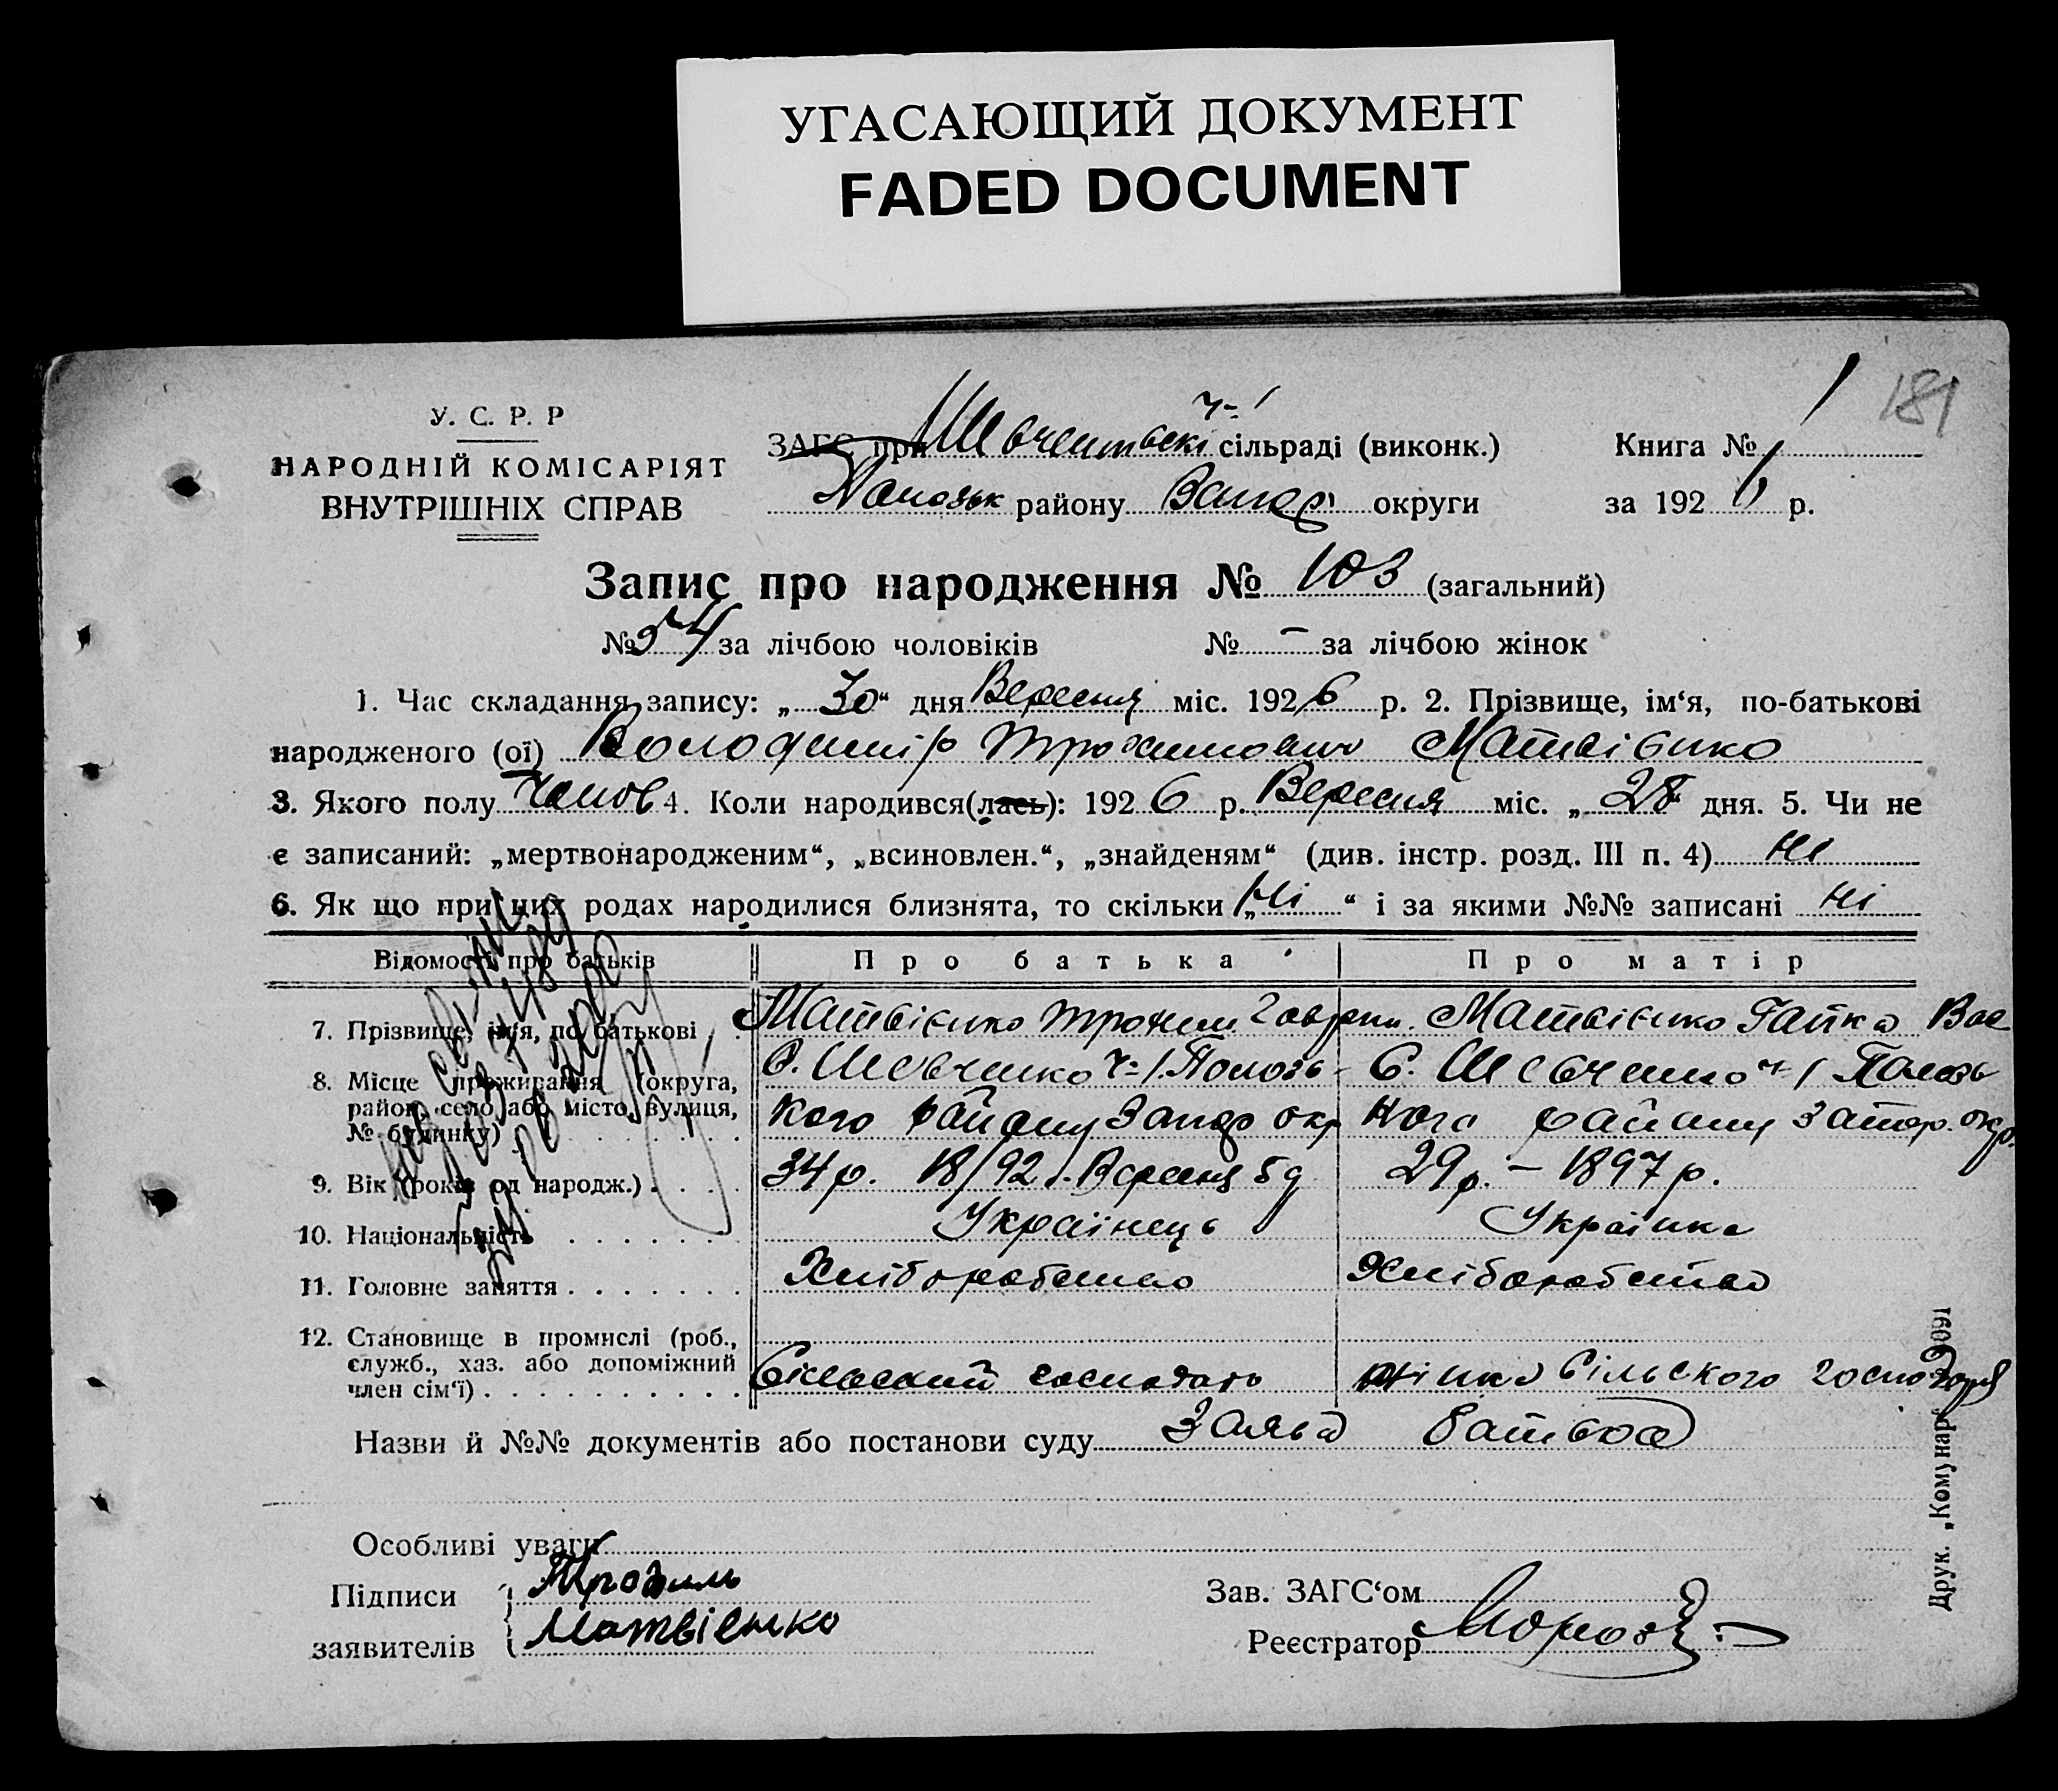 УГАСАЮЩИЙ ДОКУМЕНТ
FADED DOCUMENT
181
У. С. Р. Р
НАРОДНІЙ КОМІСАРІЯТ
ВНУТРІШНІХ СПРАВ
ч-1
ЗАГС при Шевченківскі сільраді (виконк.)
Полозьк району Запор округи
Книга № 1
за 1926 р.
Запис про народження № 103 (загальний)
№ 54 за лічбою чоловіків № – за лічбою жінок
1. Час складання запису: „30“ дня Вересня міс. 1926 р. 2. Прізвище, ім‘я, по-батькові
народженого (ої) Володимір Трохимович Матвієнко
3. Якого полу Чолов 4. Коли народився(лась): 1926 р. Вересня міс. „28 дня. 5. Чи не
є записаний: „мертвонародженим“, „всиновлен.“, „знайденям“ (див. інстр. розд. III п. 4) ні
6. Як що при цих родах народилися близнята, то скільки „Ні“ і за якими №№ записані ні
Відомості про батьків Про батька Про матір
7. Прізвище, ім‘я, по батькові Матвієнко Трохим Гаврил. Матвієнко Гапка Вас
8. Місце проживання (округа, район, село або місто, вулиця, № будинку)
С. Шевченко ч-1 Полозь-
кого району Запор окр
С. Шевченко ч-1 Полозь
кого району Запор. окр.
9. Вік (років од народж.) 34 р. 18/92 Вересня 5 д 29 р. – 1897 р.
10. Національність Українець Українка
11. Головне заняття Хліборобство Хліборобство
12. Становище в промислі (роб., служб., хаз. або допоміжний член сім‘ї) Сільський господарь жінка Сільського господаря
Назви й №№ документів або постанови суду Заява батька
Особливі уваги
Підписи заявителів Трохим
Матвієнко
Зав. ЗАГС‘ом
Реєстратор
Друк. „Комунар“